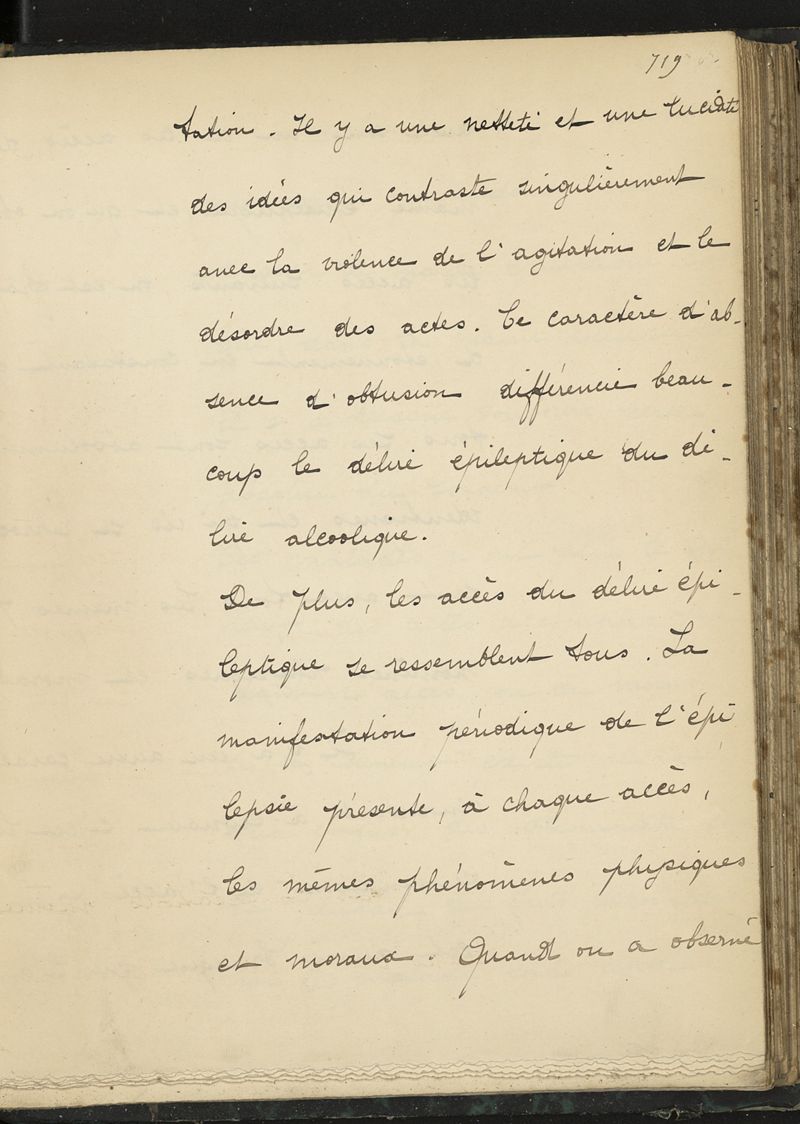 719
tation. Il y a une netteté et une lucidité
des idées qui contraste singulièrement
avec la violence de l'agitation et le
désordre des actes. Ce caractère d'ab-
sence d'obtusion différencie beau-
coup le délire épileptique du dé-
lire alcoolique.
De plus, les accès du délire épi-
leptique se ressemblent tous. La
manifestation périodique de l'épi
lepsie présente, à chaque accès,
les mêmes phénomènes physiques
et moraux. Quand on a observé